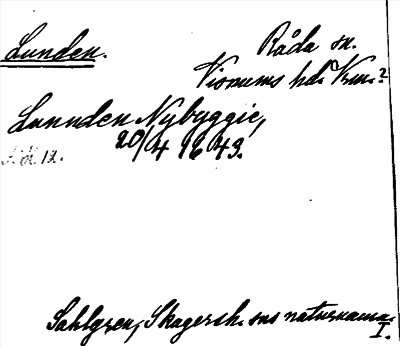 Lunden.
Råda sn.
Visnums hd. Vrm.?
Lunnden Nybyggie,
20/4 1643.
Sahlgren, Skagersh. sns naturnamn.
I.